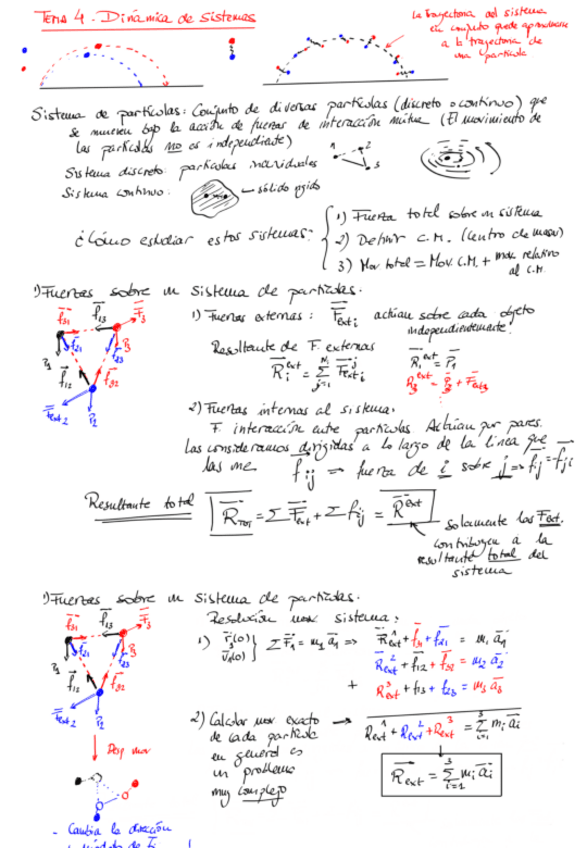 TEMA 4. Dinámica de Sistemas
La trayectoria del sistema
en conjunto puede aproximarse
a la trayectoria de
una partícula
Sistema de partículas: Conjunto de diversas partículas (discreto o continuo) que
se mueven bajo la acción de fuerzas de interacción mutua (El movimiento de
las partículas no es independiente)
Sistema discreto: partículas individuales
1 2 3
Sistema continuo: sólido rígido
¿Cómo estudiar estos sistemas?
1) Fuerza total sobre un sistema
2) Definir C.M. (Centro de masas)
3) Mov total = Mov. C.M. + mov. relativo
al C.M.
1) Fuerzas sobre un sistema de partículas.
f31 f13 F3
f21 f23 P3
P1 f12 f32
Fext2 P2
1) Fuerzas externas: Fext i actúan sobre cada objeto
independientemente!
Resultante de F. externas
Ri^ext = Σ Fext i^j
R1^ext = P1
R3^ext = P3 + Fext3
2) Fuerzas internas al sistema.
F. interacción entre partículas. Actúan por pares.
Las consideramos dirigidas a lo largo de la línea que
las une
fij ⇒ fuerza de i sobre j ⇒ fij = -fji
Resultante total RTOT = Σ Fext + Σ fij = R^ext
Solamente las Fext.
contribuyen a la
resultante total del
sistema
1) Fuerzas sobre un sistema de partículas.
f31 f13 F3
f21 f23 P3
P1 f12 f32
Fext2 P2
Resolución sistema:
1) r1(0) v1(0) } Σ F1 = m1 a1 ⇒ Rext^1 + f31 + f21 = m1 a1
Rext^2 + f12 + f32 = m2 a2
+ Rext^3 + f13 + f23 = m3 a3
2) Calcular mov exacto → Rext^1 + Rext^2 + Rext^3 = Σ mi ai
de cada partícula
en general es
un problema
muy complejo
Rext = Σ mi ai
- Cambia la dirección